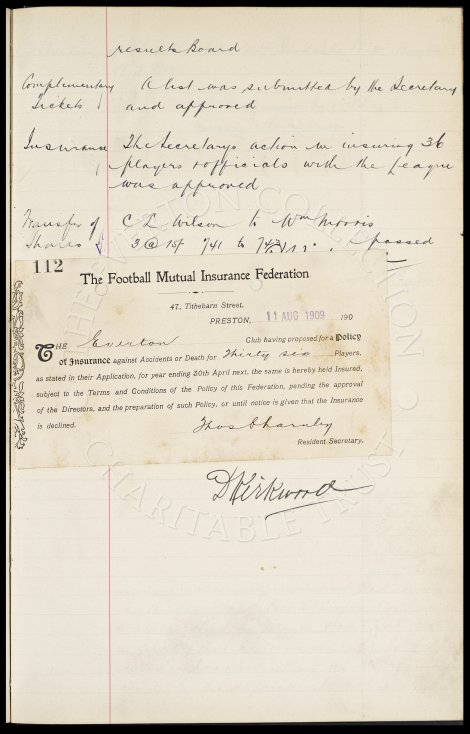 results Board
Complimentary Tickets
A list was submitted by the Secretary
and approved
Insurance
The Secretarys action in insuring 36
players & officials with the League
was approved
Transfer of Shares
C L Wilson to Wm Morris
3 @ 15/- 741 to 743
passed
112
The Football Mutual Insurance Federation
47, Tithebarn Street,
PRESTON, 11 AUG 1909 190
THE Everton Club having proposed for a Policy
of Insurance against Accidents or Death for Thirty six Players,
as stated in their Application, for year ending 30th April next, the same is hereby held Insured,
subject to the Terms and Conditions of the Policy of this Federation, pending the approval
of the Directors, and the preparation of such Policy, or until notice is given that the Insurance
is declined.
Thos Charnley
Resident Secretary.
D Kirkwood
THE EVERTON COLLECTION
CHARITABLE TRUST